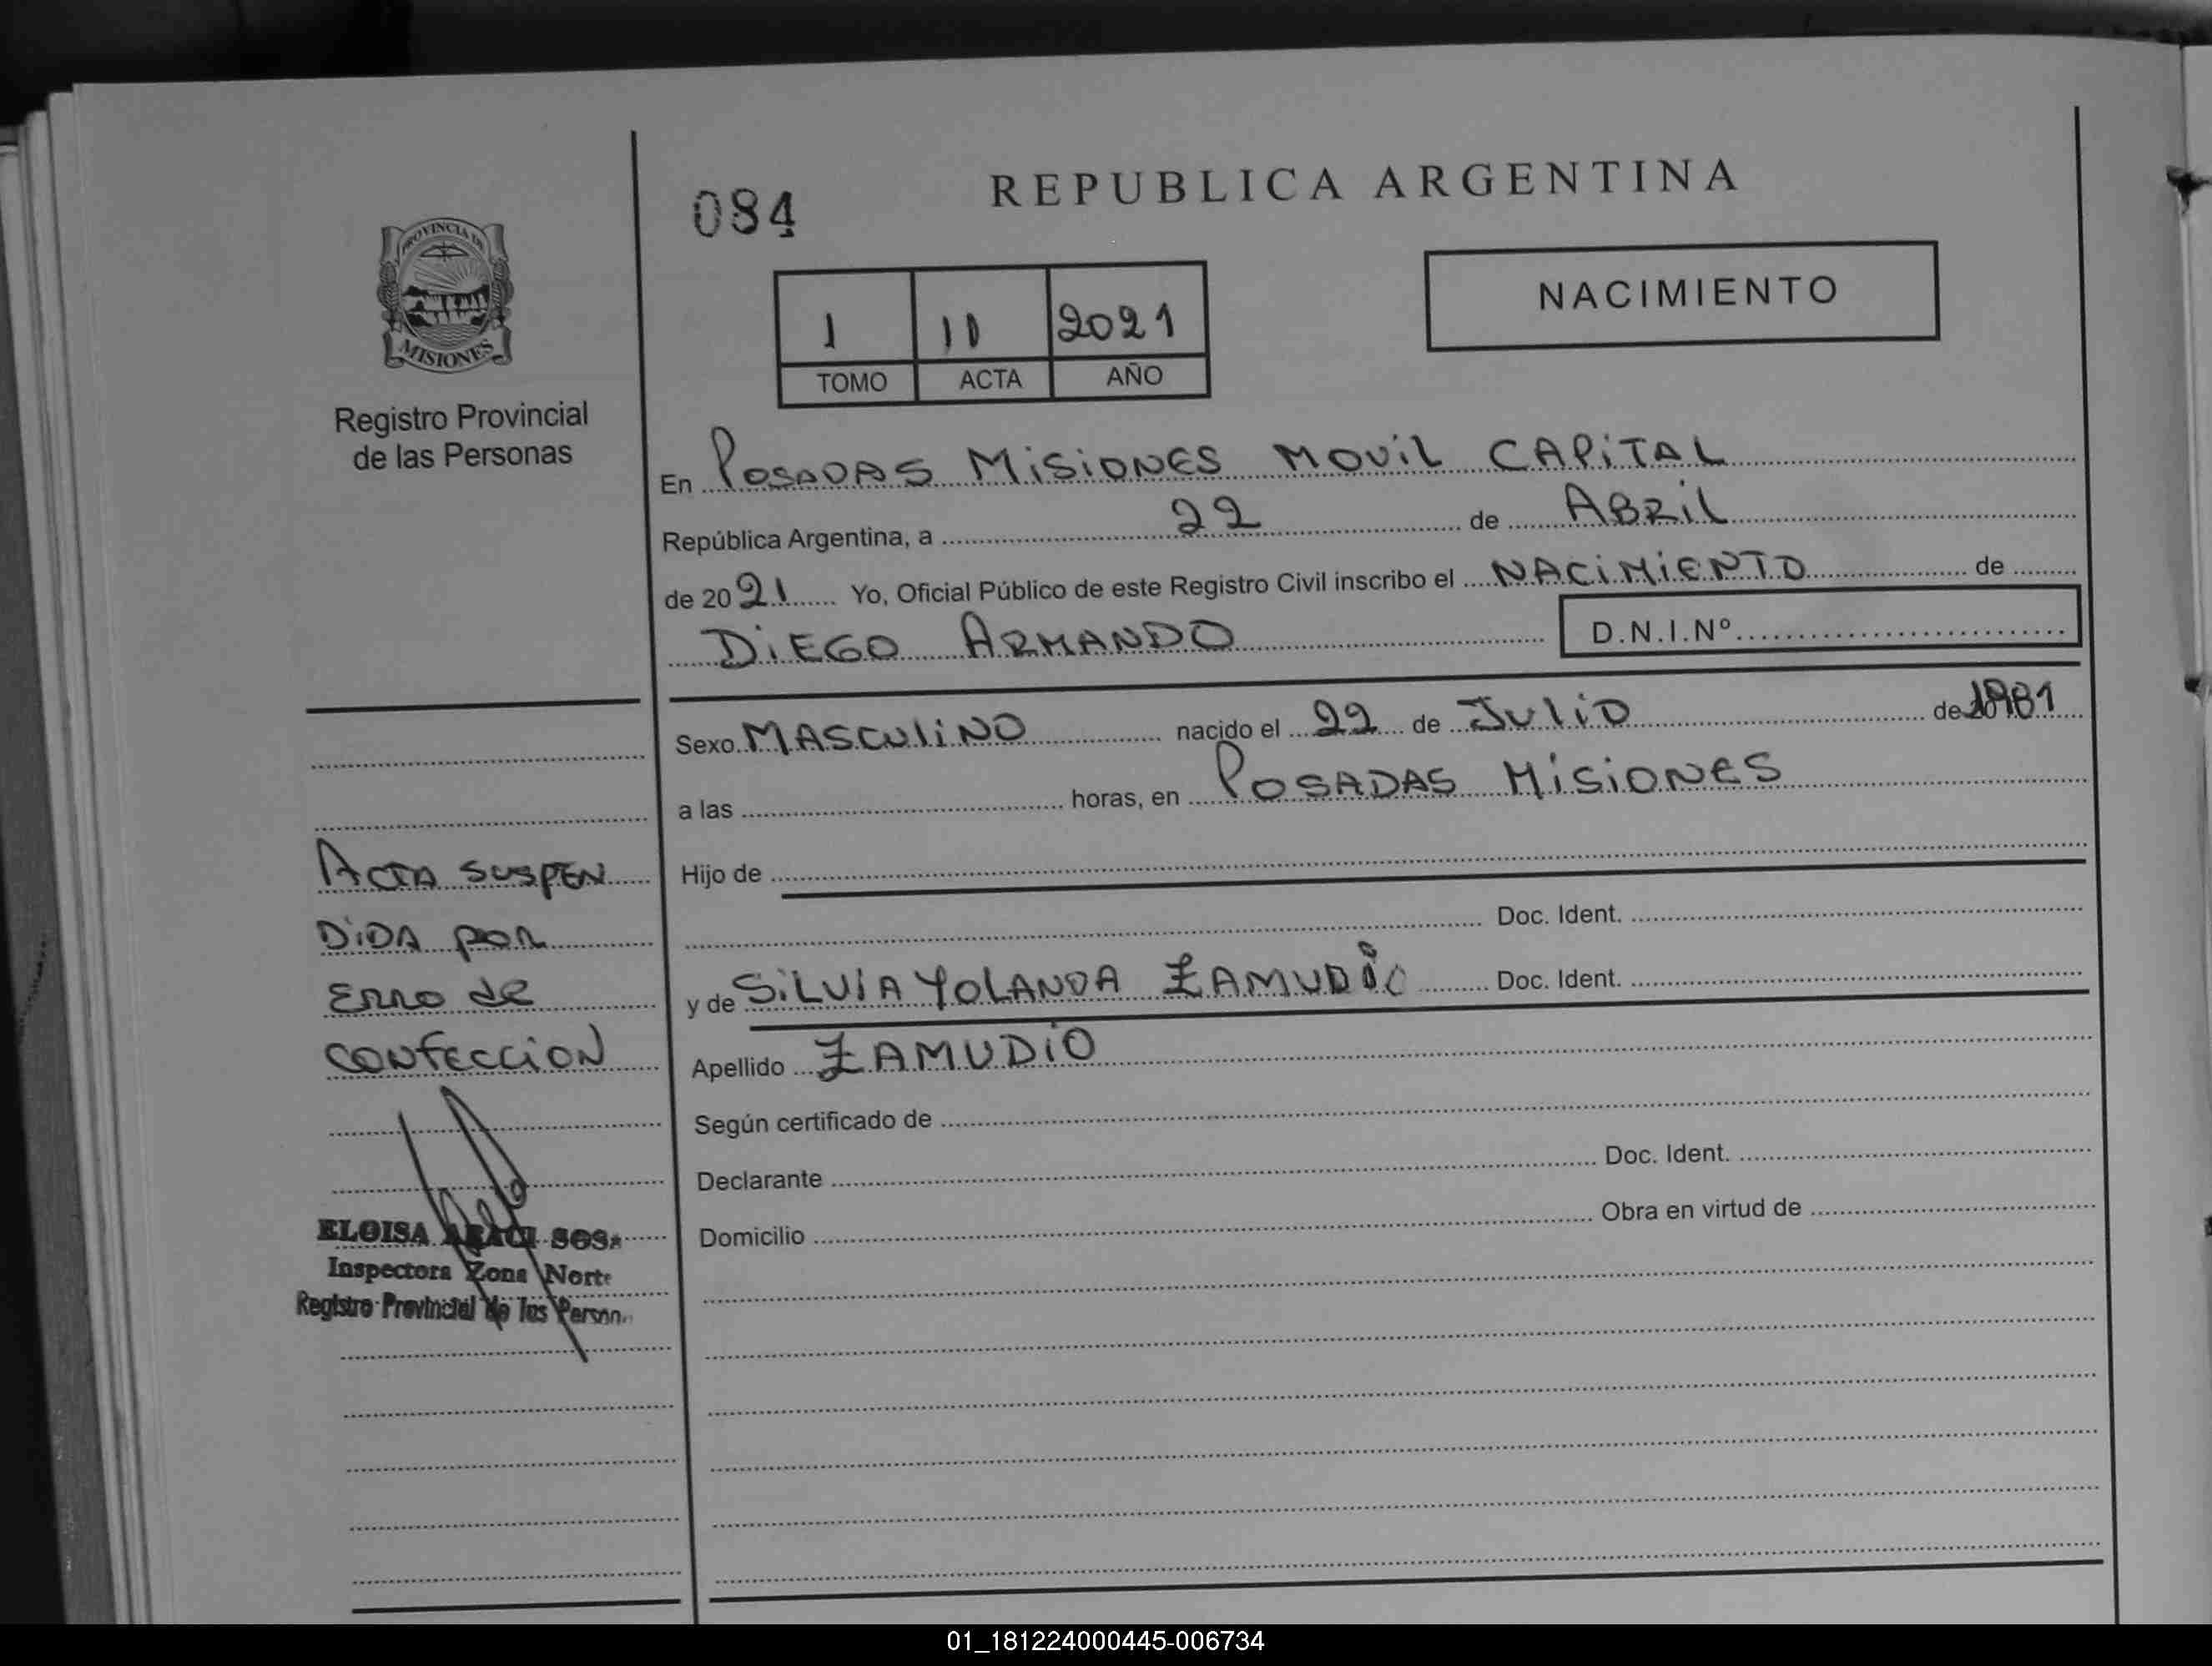 084
REPUBLICA ARGENTINA
PROVINCIA DE
MISIONES
Registro Provincial
de las Personas
1 10 2021
TOMO ACTA AÑO
NACIMIENTO
En POSADAS MISIONES MOVIL CAPITAL
República Argentina, a 22 de ABRIL
de 2021 Yo, Oficial Público de este Registro Civil inscribo el NACIMIENTO de
DIEGO ARMANDO D.N.I.Nº
Sexo MASCULINO nacido el 22 de JULIO de 1981
a las horas, en POSADAS MISIONES
Hijo de
Doc. Ident.
y de SILVIA YOLANDA ZAMUDIO Doc. Ident.
Apellido ZAMUDIO
Según certificado de
Declarante Doc. Ident.
Domicilio Obra en virtud de
ACTA SUSPEN
DIDA POR
ERRO de
CONFECCION
ELOISA ARACI SOSA
Inspectora Zona Norte
Registro Provincial de las Person.
01_181224000445-006734